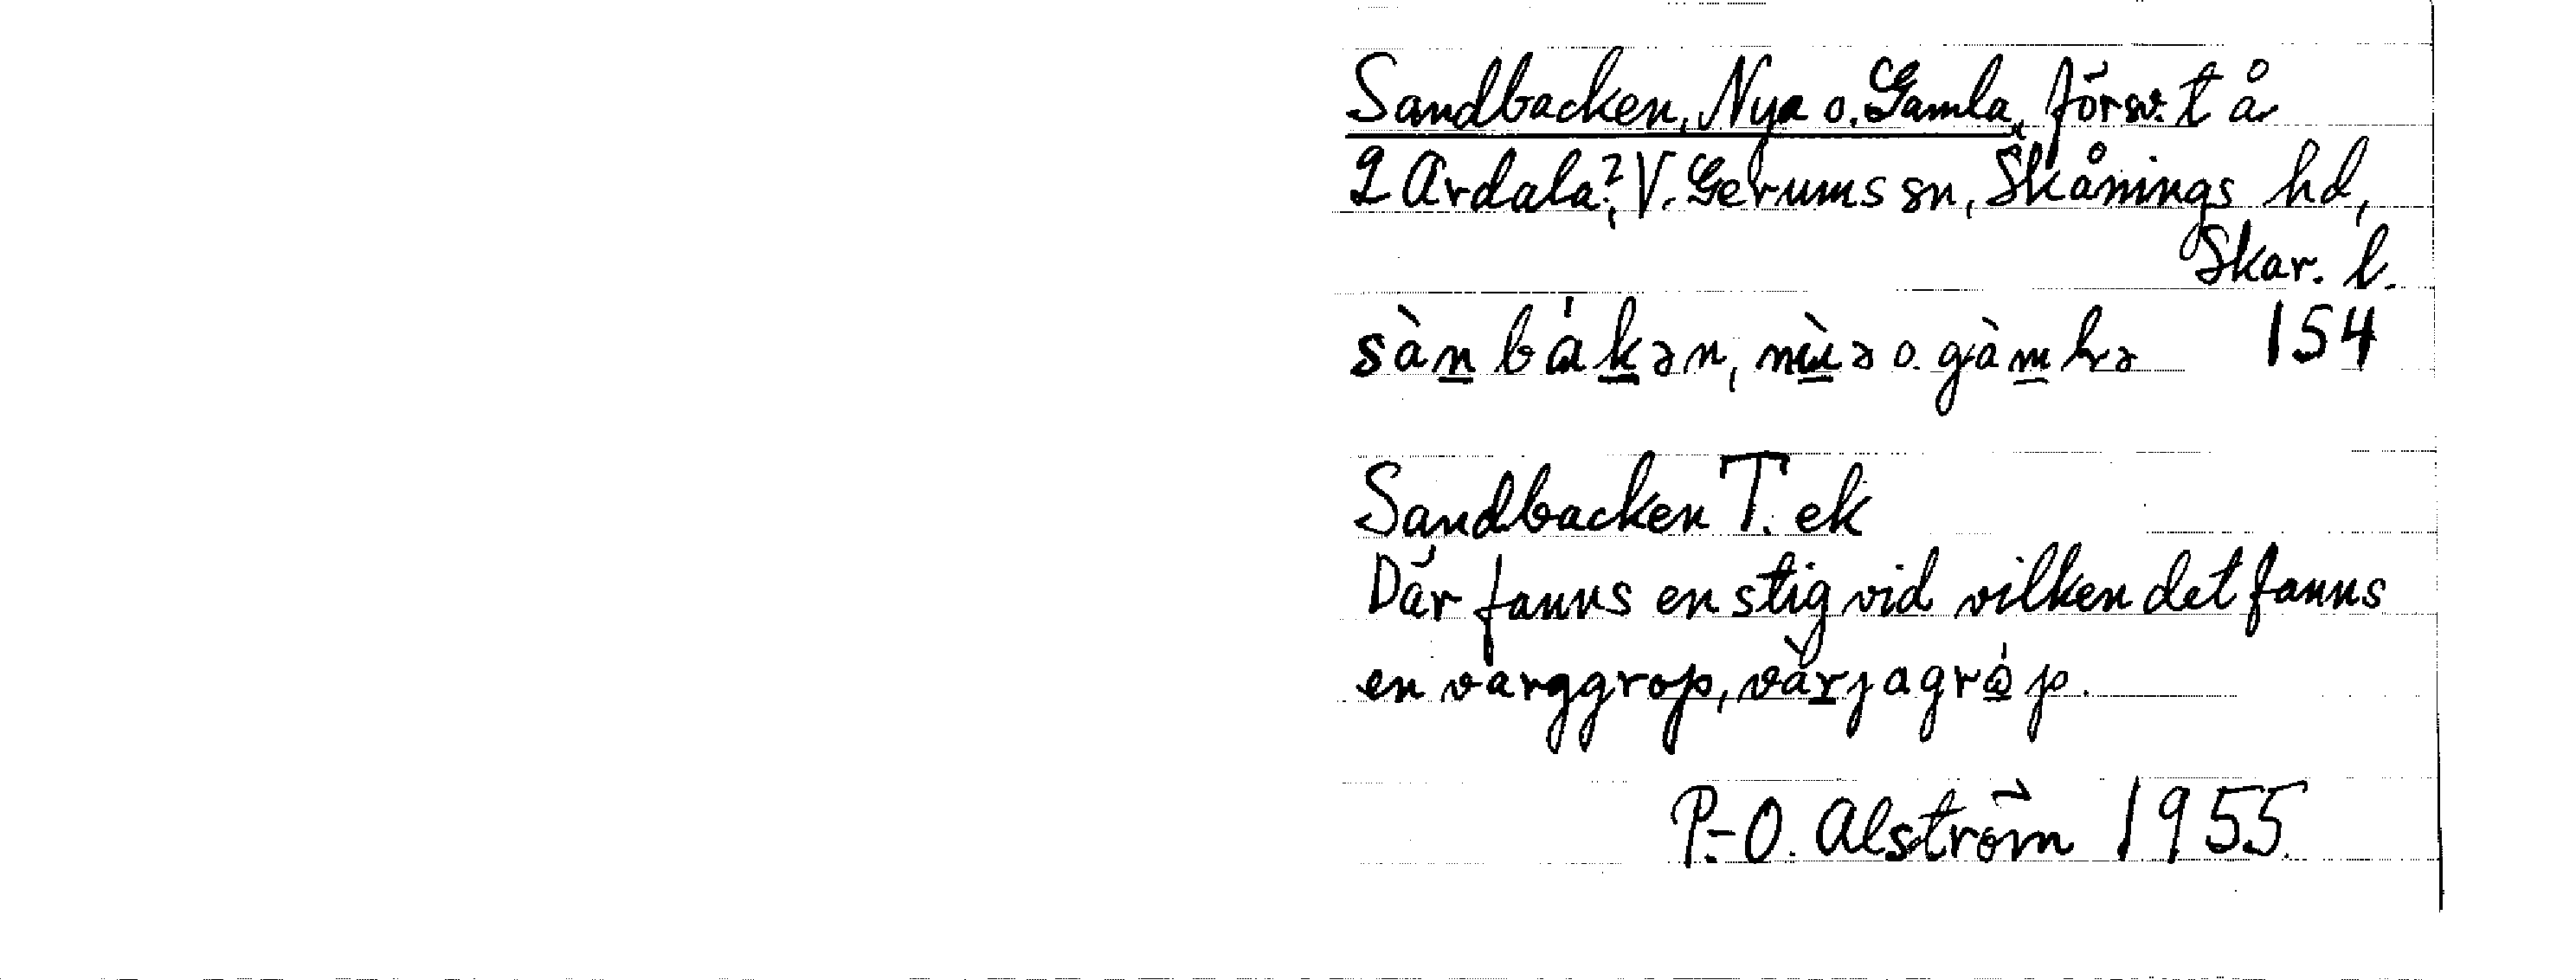 Sandbacken, Nya o. Gamla, försv. t å
2 Ardala?, V. Gerums sn, Skånings hd,
Skar. l.
sàn bákən, nùə o. gàmlə 154
Sandbacken T. ek
Där fanns en stig vid vilken det fanns
en varggrop, vàrjagráp.
P.-O. Alström 1955.